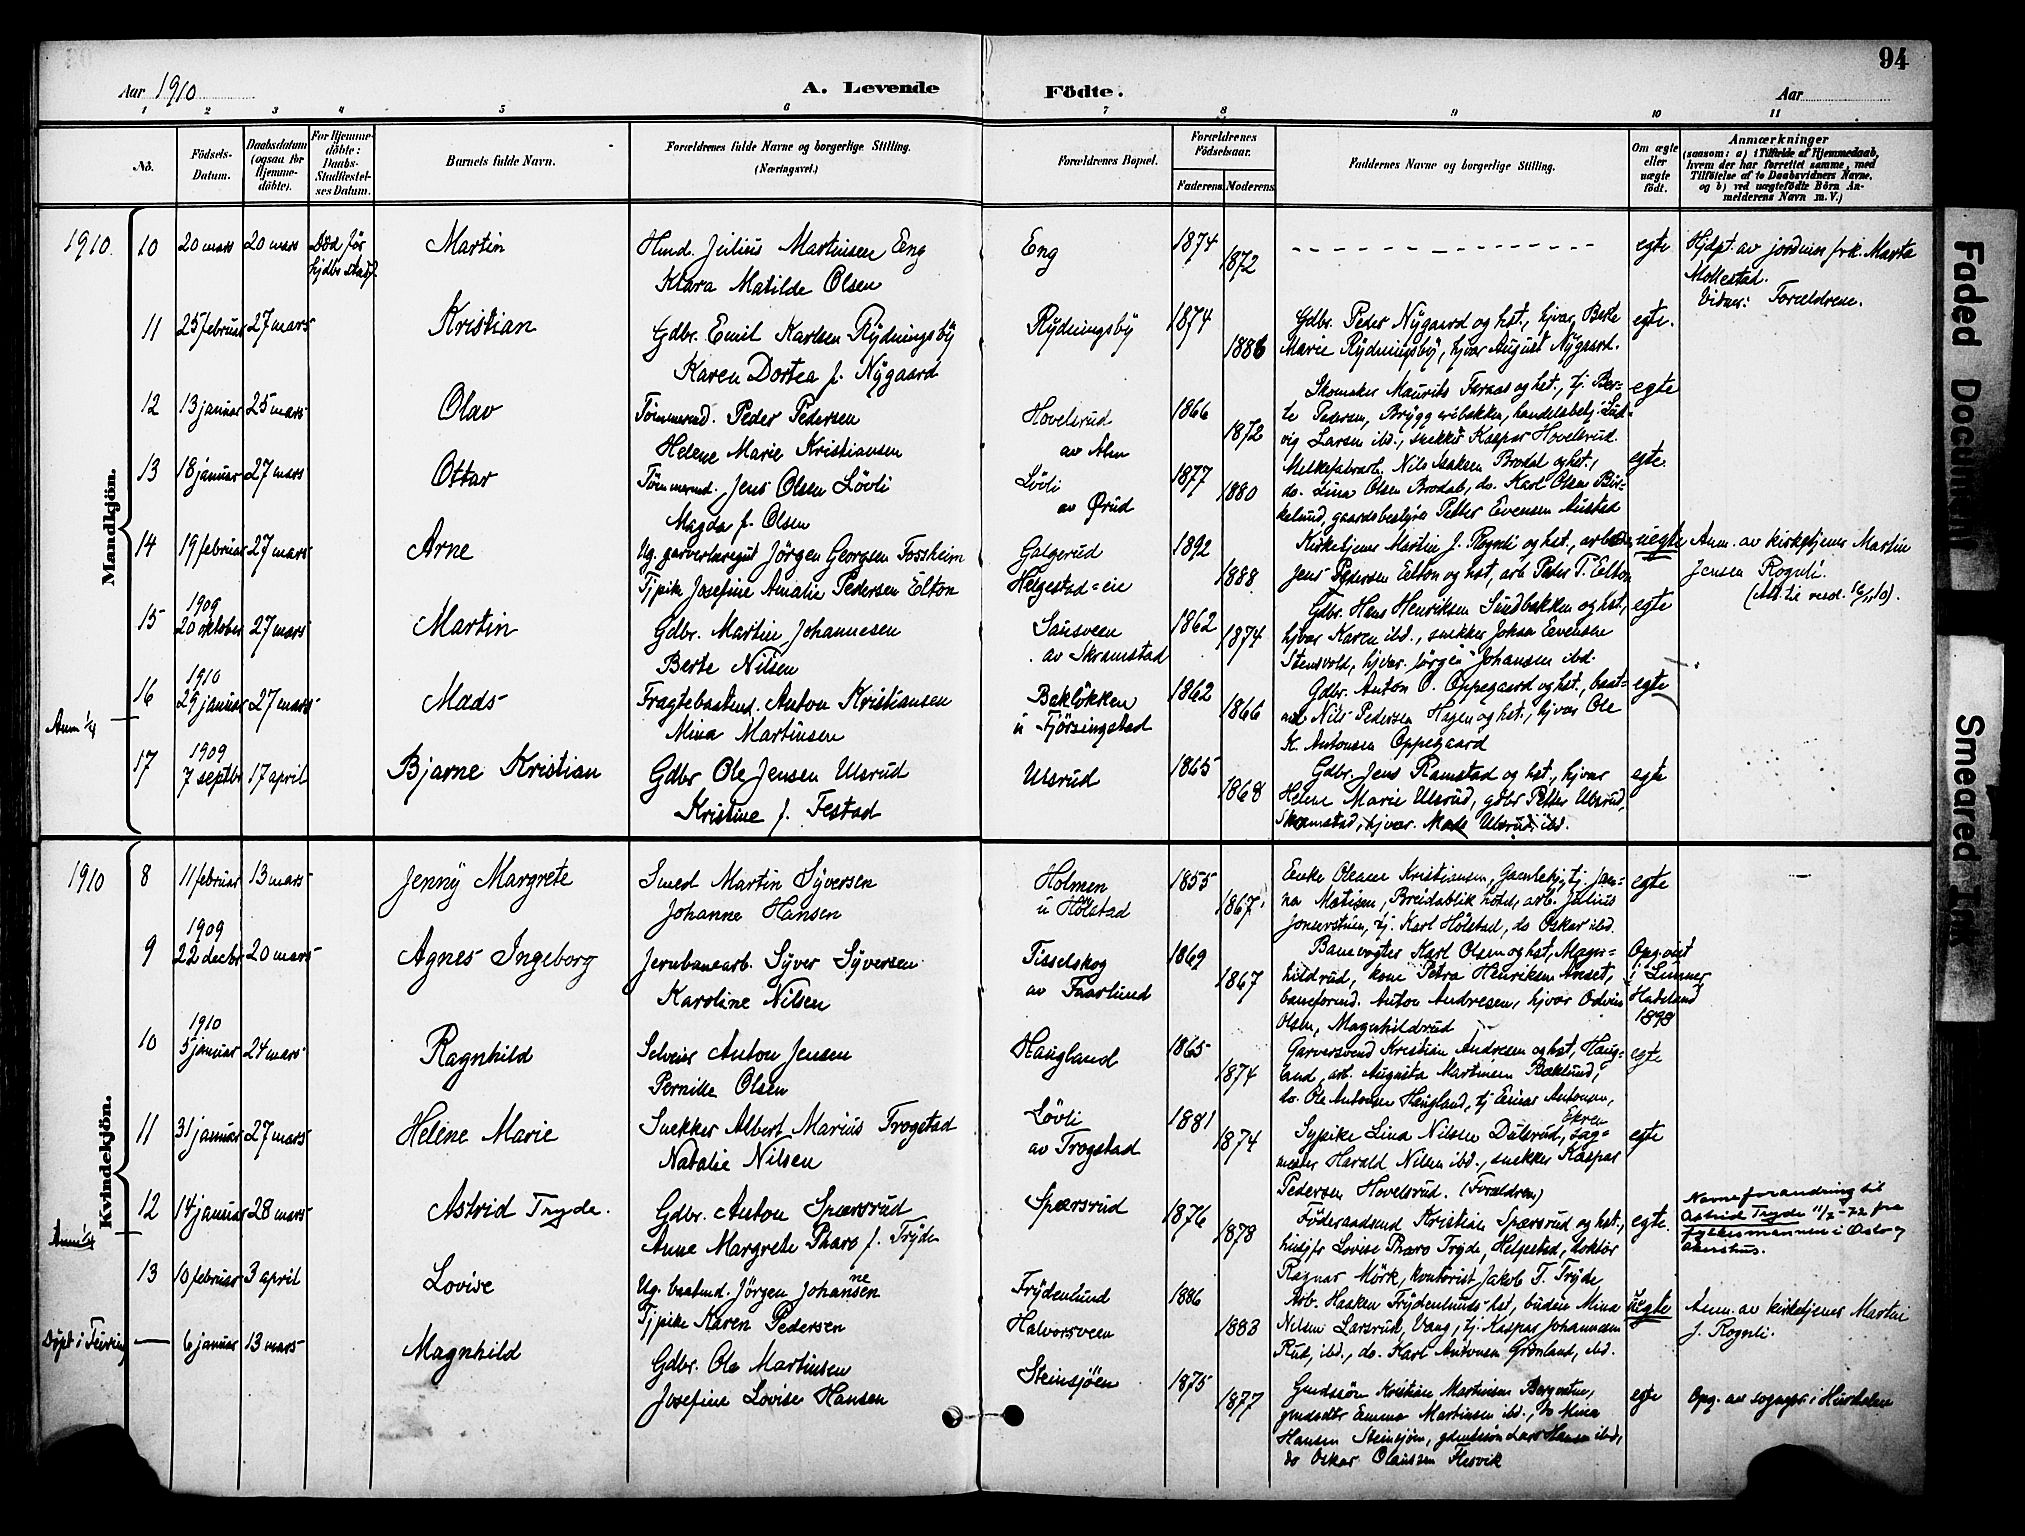 94
Aar 1910
A. Levende Födte.
Aar
1 2 3 4 5 6 7 8 9 10 11
No.
Födsels-Datum.
Daabsdatum (ogsaa for Hjemme-döbte).
For Hjemme-döbte: Daabs-Stadfæstel-ses Datum.
Barnets fulde Navn.
Forældrenes fulde Navne og borgerlige Stilling.
(Næringsvei.)
Forældrenes Bopæl.
Forældrenes Födselsaar.
Faderens Moderens
Faddernes Navne og borgerlige Stilling.
Om ægte eller uægte födt.
Anmærkninger
(saasom: a) i Tilfælde af Hjemmedaab,
hvem der har forrettet samme, med
Tilföielse af to Daabsvidners Navne,
og b) ved uægtefödte Börn An-
melderens Navn m. V.)
Mandkjön.
1910 10 20 mars 20 mars Död før hjdbs stadf. Martin
Hmd. Julius Martinsen Eng
Klara Matilde Olsen
Eng 1874 1872 egte
Hjdpt. av jordmor frk. Marta
Mollestad.
Vidner: Forældrene.
11 25 februar 27 mars Kristian
Gdbr. Emil Karlsen Rydningsby
Karen Dortea f. Nygaard
Rydningsby 1874 1886
Gdbr. Peder Nygaard og hst., hjvar. Berte
Marie Rydningsby, hjvar August Nygaard.
egte.
12 13 januar 25 mars Olav
Tömmermd. Peder Pedersen
Helene Marie Kristiansen
Hovelsrud
av Alm
1866 1872
Skomaker Maurits Faraas og hst., tj. Ber-
te Pedersen, Bryggeribakken, handelsbetj. Lud-
vig Larsen ibd., snekker Kaspar Hovelsrud.
egte
13 18 januar 27 mars Ottar
Tömmermd. Jens Olsen Lövli
Magda f. Olsen
Lövli
av Ørud
1877 1880
Melkefabrarb. Nils Isaksen Brodal og hst.,
do. Lina Olsen Brodal, do. Karl Olsen Bir-
kelund, gaardsbestyrer Petter Evensen Austad
egte.
14 19 februar 27 mars Arne
Ug. garverlæregut Jörgen Georgsen Fossheim
Tj pike Josefine Amalie Pedersen Elton
Galgerud
Helgestad=eie
1892 1888
Kirketjener Martin J. Rognli og hst., arbeider
Jens Pedersen Elton og hst, arb. Peder T. Elton
uegte
Anm. av kirketjener Martin
Jensen Rognli.
15 1909 20 oktober 27 mars Martin
Gdbr. Martin Johannesen
Berte Nilsen
Sausveen
av Skramstad
1862 1874
Gdbr. Hans Henriksen Sundbakken og hst,
hjvar Karen ibd., snekker Johan Evensen
Stensvold, hjvar. Jörgen Johansen ibd.
egte
16 1910 29 januar 27 mars Mads
Fragtebaatmd. Anton Kristiansen
Mina Martinsen
Baklökken
u Fjörsingstad
1862 1866
Gdbr. Anton O. Oppegaard og hst., baat-
md Nils Pedersen Hagen og hst., hjvar Ole
K. Antonsen Oppegaard
egte
Anm 1/4
17 1909 7 septbr 17 april Bjarne Kristian
Gdbr Ole Jensen Ulsrud
Kristine f. Festad
Ulsrud 1865 1868
Gdbr. Jens Ramstad og hst., hjvar
Helene Marie Ulsrud, gdbr Petter Ulsrud,
Skramstad, hjvar. Mads Ulsrud, ibd.
egte
Kvindekjön.
1910 8 11 februar 13 mars Jenny Margrete
Smed Martin Syversen
Johanne Hansen
Holmen
u Hölstad
1855 1867
Enke Oleane Kristiansen, Gamlehj, tj Jen-
na Matisen, Breidablik hotel, arb. Julius
tj. Karl Hölstad, do Oskar ibd.
egte
9 1909 22 decbr 20 mars Agnes Ingeborg
Jernbanearb. Syver Syversen
Karoline Nilsen
Tisselskog
av Faarlund
1869 1867
Banevogter Karl Olsen og hst, Magn-
hildrud, kone Petra Henriksen Anset,
baneformd. Anton Andresen, hjvar Odvin
Olsen, Magnhildrud
Opg. viet
i Lunner,
Hadeland
1898
10 1910 5 januar 24 mars Ragnhild
Selveier Anton Jensen
Pernille Olsen
Haugland 1865 1874
Garversvend Kristian Andresen og hst, Haug-
land, arb. Augusta Martinsen Baklund,
do. Ole Antonsen Haugland, tj Einar Antonsen,
egte
11 31 januar 27 mars Helene Marie
Snekker Albert Marius Trogstad
Natalie Nilsen
Lövli
av Trogstad
1881 1874
Ekren
Sypike Lina Nilsen Dulsrud, sag-
mester Harald Nilsen ibd., snekker Kaspar
Pedersen Hovelsrud. (Forældren)
egte
12 14 januar 28 mars Astrid Tryde.
Gdbr. Anton Spærsrud
Anne Margrete Tharo f. Tryde
Spærsrud 1876 1878
Föderaadsmd Kristian Spærsrud og hst.,
husjfr Lovise Tharo Tryde, Helgestad, doktor
Ragnar Mörk, kontorist Jakob T. Tryde
egte.
Navneforandring til
Astrid Tryde 11/2-72 fra
fylkesmannen i Oslo og
Akershus.
Anm 1/4
13 10 februar 3 april Lovise
Ug. baatmd. Jörgen Johannesen
Tj pike Karen Pedersen
Trydenlund
Halvorsveen
1886 1883
Arb. Haaken Trydenlunds hst, budeie Mina
Nilsen Larsrud, Vang, tj. Kaspar Johannesen
Rud, ibd., do. Karl Antonsen Grönland, ibd.
uegte
Anm. av kirketjener Martin
J. Rognli.
Döpt i Feiring — 6 januar 13 mars Magnhild
Gdbr. Ole Martinsen
Josefine Lovise Hansen
Steinsjöen 1875 1877
Gaardssön Kristian Martinsen Bergvatn,
gmdsdtr Emma Martinsen ibd., do Mina
Hansen Steinsjöen, gmdssön Lars Hansen ibd,
do Oskar Olaussen Flesvik
egte
Opg. av sognepr. i Hurdalen
Faded Document
Smeared Ink